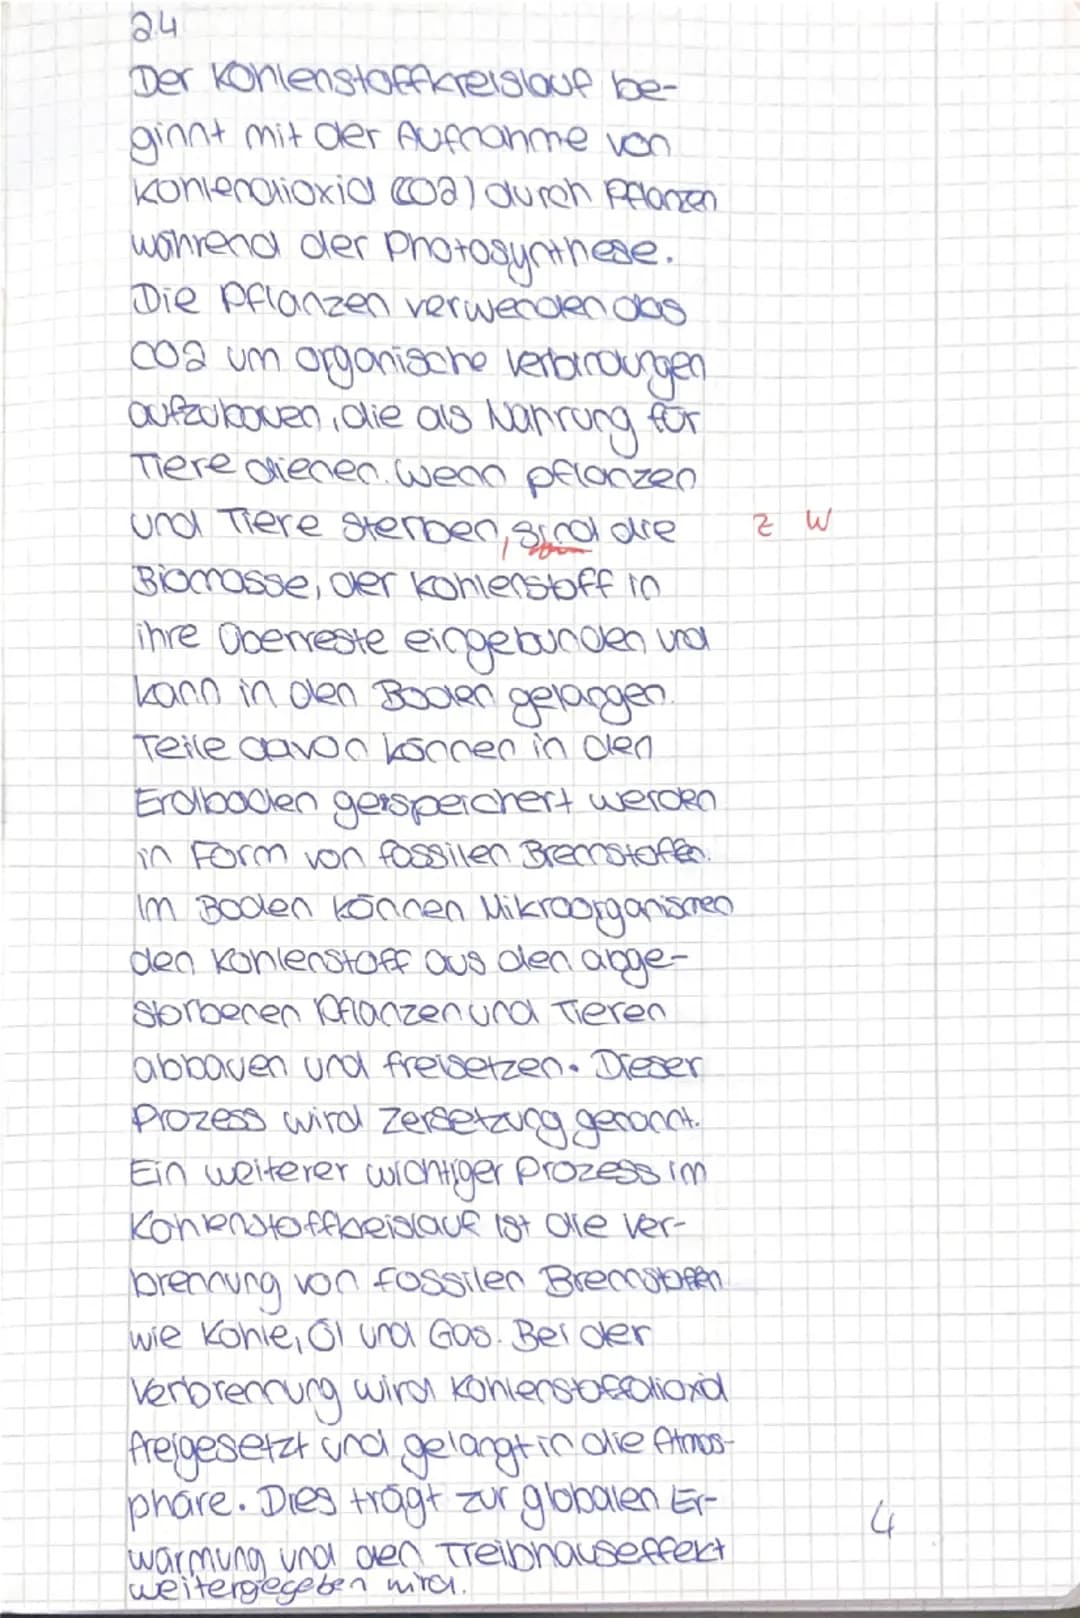 2.4
Der Kohlenstoffkreislauf be-
ginnt mit der Aufnahme von
Kohlendioxid (CO2) durch Pflanzen
während der Photosynthese.
Die Pflanzen verwenden das
CO2 um organische Verbindungen
aufzubauen, die als Nahrung für
Tiere dienen. Wenn pflanzen
und Tiere sterben, sind die Z W
Biomasse, der Kohlenstoff in
ihre Überreste eingebunden und
kann in den Boden gelangen.
Teile davon können in den
Erdboden gespeichert werden
in Form von fossilen Brennstoffen.
Im Boden können Mikroorganismen
den Kohlenstoff aus den abge-
storbenen Pflanzen und Tieren
abbauen und freisetzen. Dieser
Prozess wird Zersetzung genannt.
Ein weiterer wichtiger Prozess im
Kohlenstoffkreislauf ist die Ver-
brennung von fossilen Brennstoffen
wie Kohle, Öl und Gas. Bei der
Verbrennung wird Kohlenstoffdioxid
freigesetzt und gelangt in die Atmos-
phäre. Dies trägt zur globalen Er-
wärmung und den Treibhauseffekt 4
weitergegeben wird.